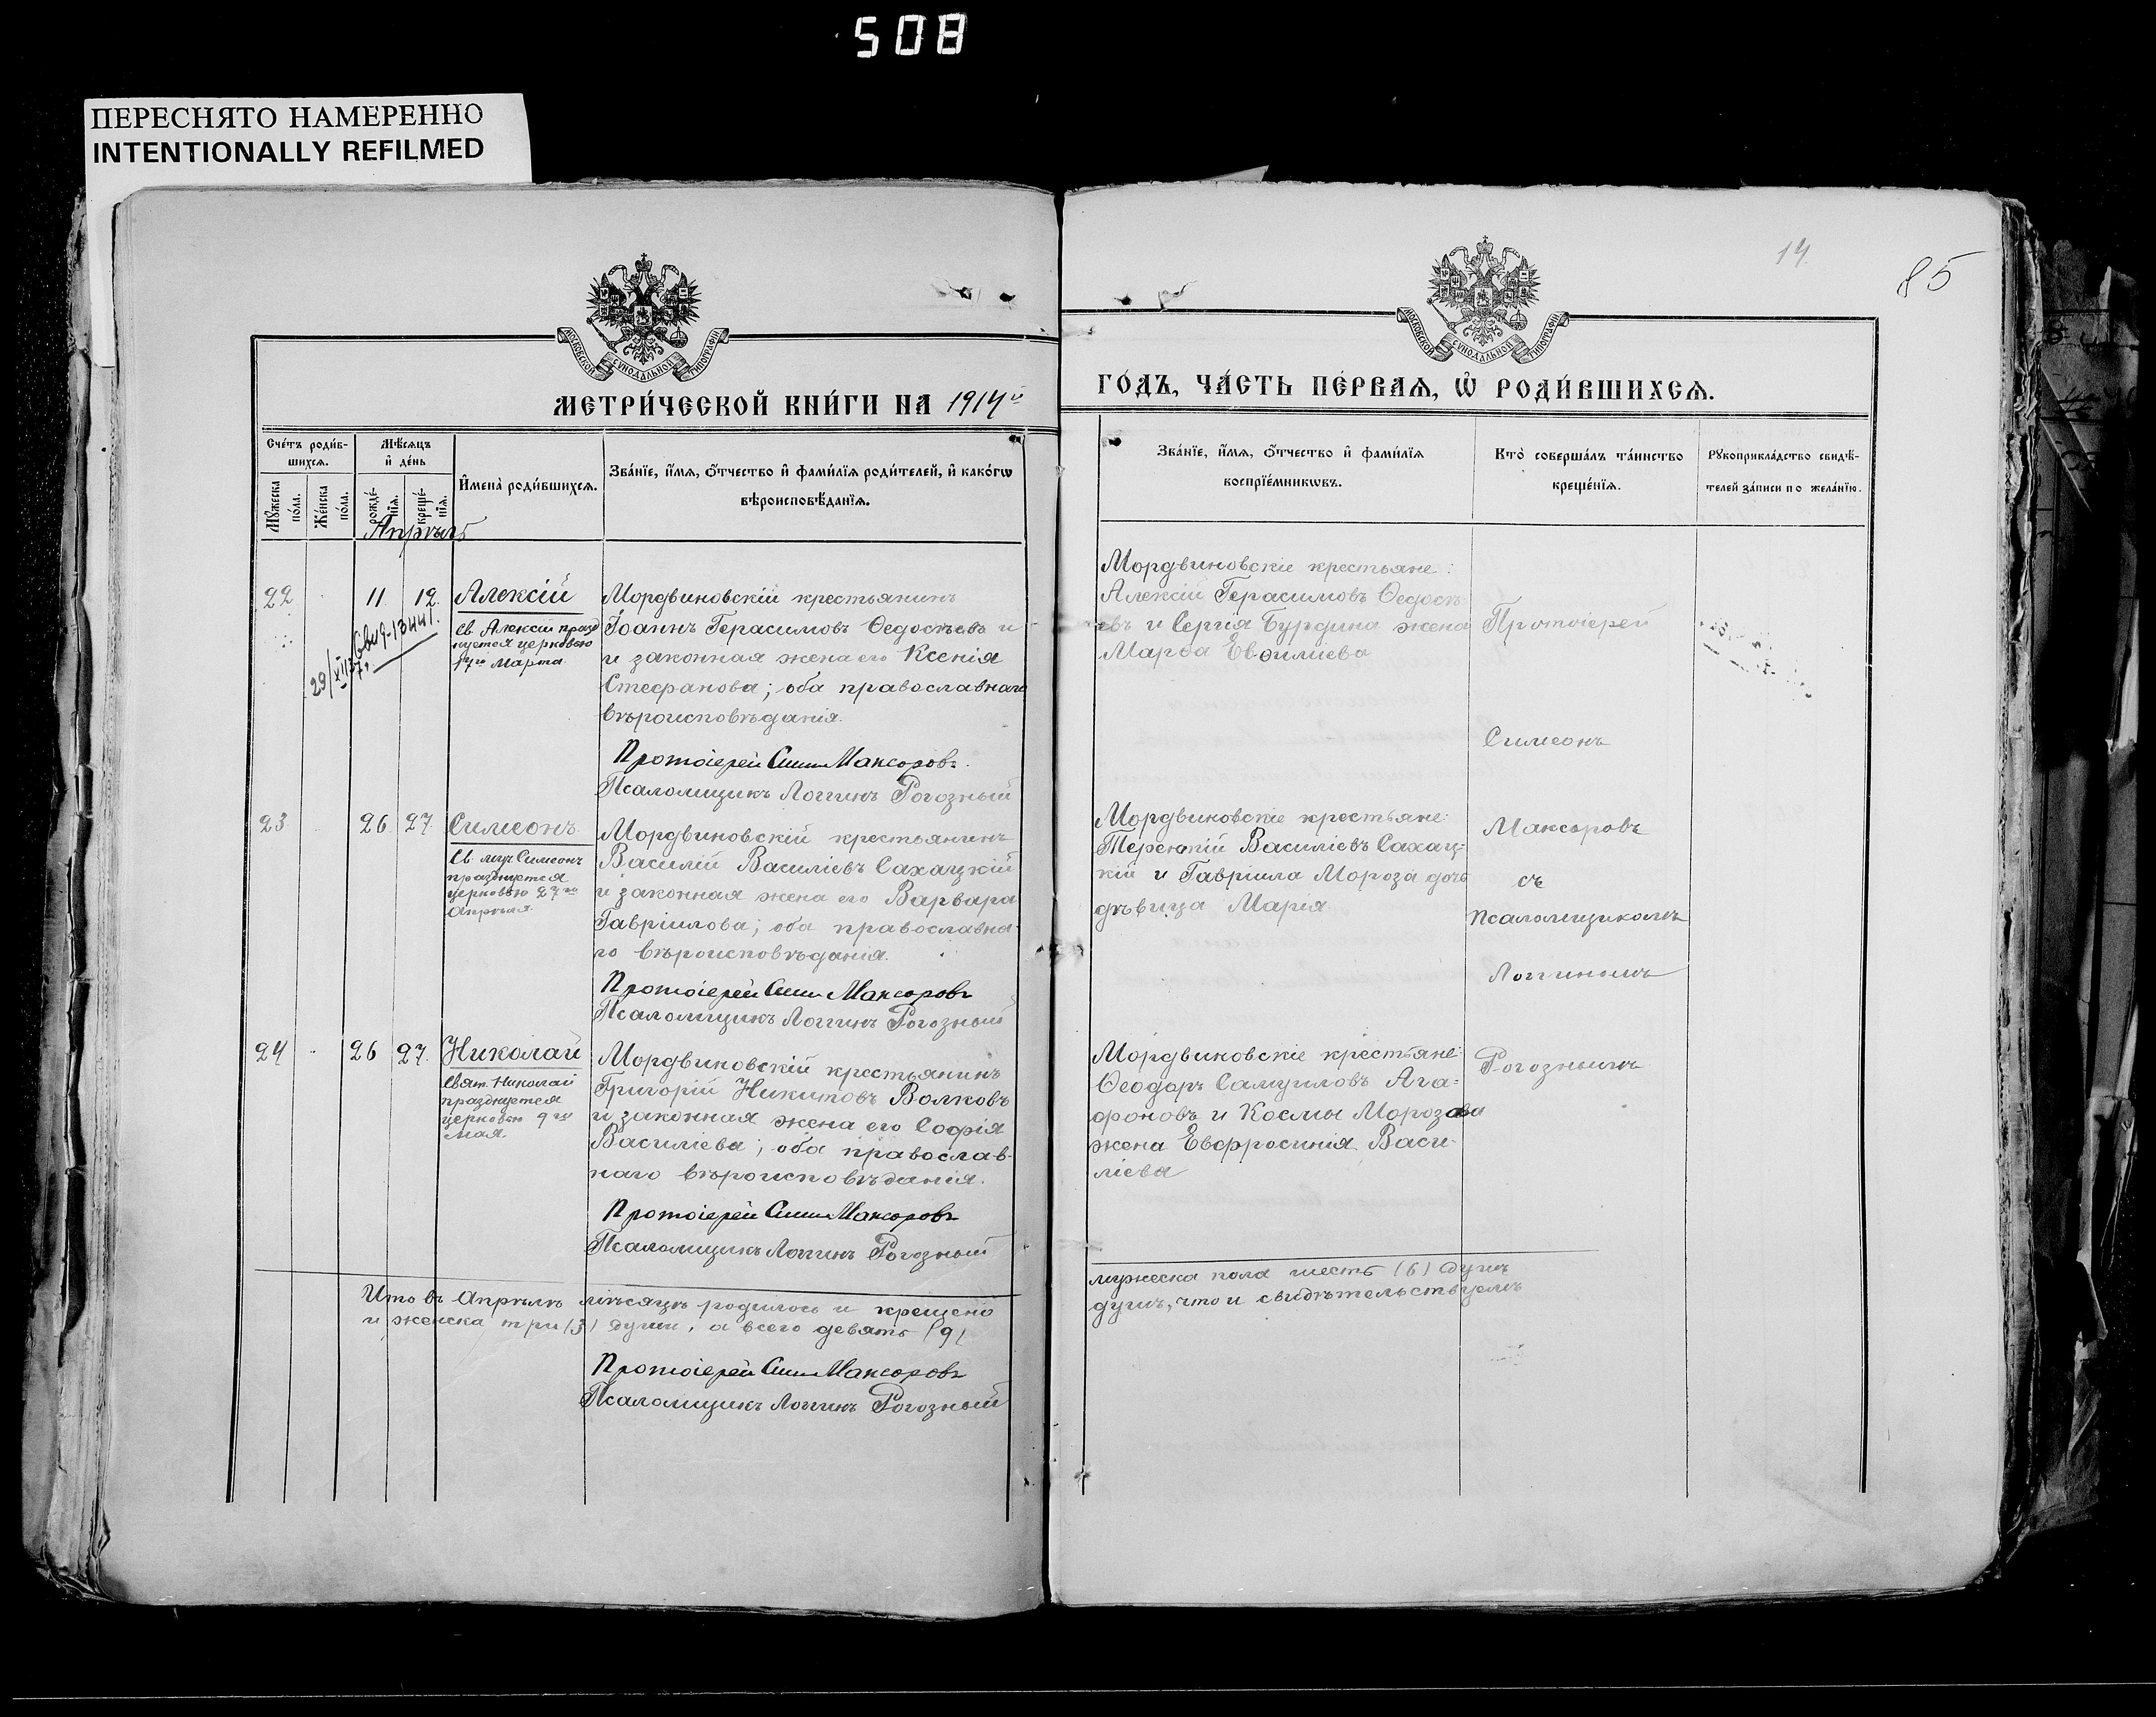 508
ПЕРЕСНЯТО НАМЕРЕННО
INTENTIONALLY REFILMED
14.
85
МОСКОВСКОЙ СУНОДАЛЬНОЙ ТИПОГРАФІИ
МОСКОВСКОЙ СУНОДАЛЬНОЙ ТИПОГРАФІИ
МЕТРИ́ЧЕСКОЙ КНИ́ГИ НА 1914й
ГО́ДЪ, ЧА́СТЬ ПЕ́РВАѦ, Ѡ҆ РОДИ́ВШИХСѦ.
Сче́тъ роди́в-
шихсѧ.
Мꙋ́жеска по́ла.
Же́нска по́ла.
Мѣ́сѧцъ
и҆ де́нь
рожде́-нїѧ.
креще́-нїѧ.
И҆мена̀ роди́вшихсѧ.
Зва́нїе, и҆́мѧ, ѻ҆́тчество и҆ фами́лїѧ роди́телей, и҆ како́гѡ
вѣроисповѣ́данїѧ.
Зва́нїе, и҆́мѧ, ѻ҆́тчество и҆ фами́лїѧ
воспрїе́мникѡвъ.
Кто̀ соверша́лъ та́инство
креще́нїѧ.
Рꙋкоприкла́дство свидѣ́-
телей за́писи по жела́нїю.
Апрѣль
22
11
12
Алексій
Св. Алексій празд
нуется церковью
17го Марта
Мордвиновскій крестьянинъ
Іоаннъ Герасимовъ Ѳедосѣевъ и
и законная жена его Ксенія
Стефанова; оба православнаго
вѣроисповѣданія.
Протоіерей Сим Максоровъ.
Псаломщикъ Логгинъ Рогозный
Мордвиновскіе крестьяне:
Алексій Герасимовъ Ѳедосѣ
евъ и Сергія Бурдина жена
Марѳа
Протоіерей
Симеонъ
Максоровъ
съ
псаломщикомъ
Логгиномъ
Рогознымъ
23
26
27
Симеонъ
Св. муч Симеонъ
празднуется
церковью 27го
Апрѣля
Мордвиновскій крестьянинъ
Василій Василіевъ Сахацкій
и законная жена его Варвара
Гавріилова; оба православна-
го вѣроисповѣданія.
Протоіерей Сим Максоровъ
Псаломщикъ Логгинъ Рогозный
Мордвиновскіе крестьяне:
Терентій Василіевъ Сахац-
кій и Гавріила Мороза дочь
дѣвица Марія
24
26
27.
Николай
Свят. Николай
празднуется
церковью 9го
Мая
Мордвиновскій крестьянинъ
Григорій Никитовъ Волковъ
и законная жена его Софія
Василіева; оба православ-
наго вѣроисповѣданія.
Протоіерей Сим Максоровъ
Псаломщикъ Логгинъ Рогозный
Мордвиновскіе крестьяне:
Ѳеодоръ Самуиловъ Ага=
фоновъ и Космы Морозова
жена Евфросинія Васи-
ліева
Итого въ Апрѣлѣ мѣсяцѣ родилось и крещено
мужеска пола шесть (6) душъ
и женска три (3) души, а всего девять (9)
душъ, что и свидѣтельствуемъ
Протоіерей Сим Максоровъ
Псаломщикъ Логгинъ Рогозный